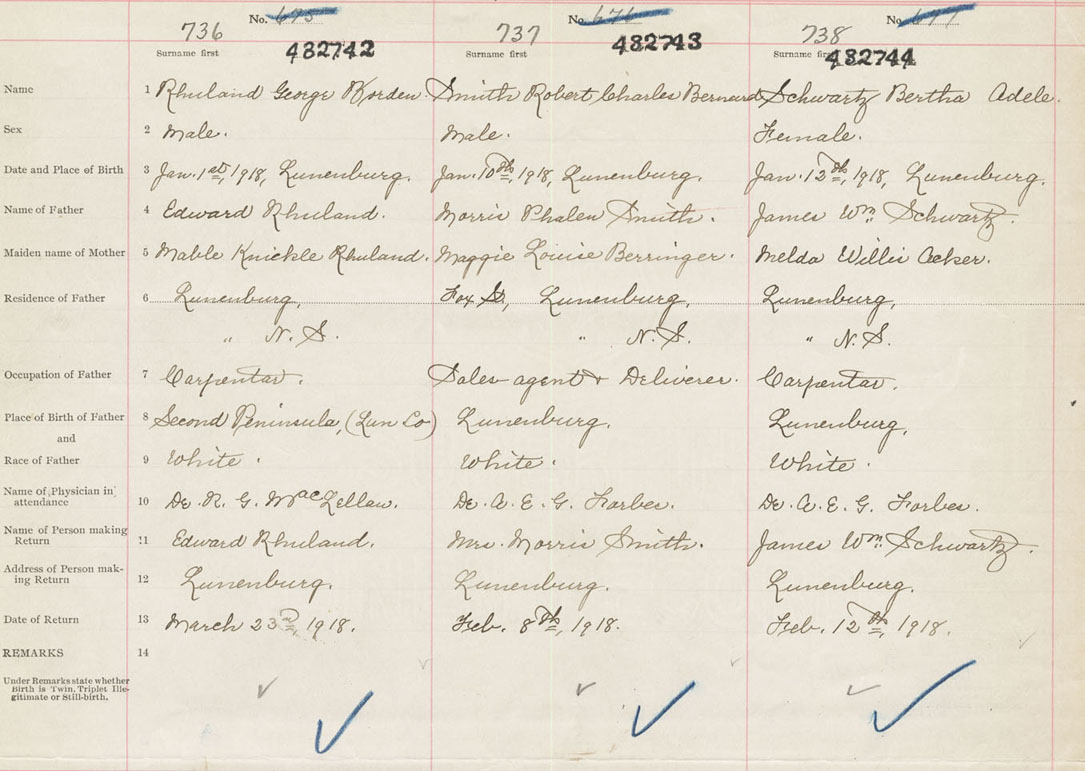 No. 675 No. 676 No. 677
736 737 738
Surname first 432742 Surname first 432743 Surname first 432744
Name 1 Rhuland George Borden. Smith Robert Charles Bernard Schwartz Bertha Adele.
Sex 2 Male. Male. Female.
Date and Place of Birth 3 Jan. 1st, 1918, Lunenburg. Jan. 10th, 1918, Lunenburg. Jan. 12th, 1918, Lunenburg.
Name of Father 4 Edward Rhuland. Morris Phalen Smith. James Wm. Schwartz.
Maiden name of Mother 5 Mable Knickle Rhuland. Maggie Louise Berringer. Melda Willis Acker.
Residence of Father 6 Lunenburg, Fox St, Lunenburg, Lunenburg,
" N.S. " N.S. " N.S.
Occupation of Father 7 Carpentar. Sales-agent & Deliverer. Carpentar.
Place of Birth of Father 8 Second Peninsula, (Lun Co) Lunenburg. Lunenburg,
and
Race of Father 9 White. White. White.
Name of Physician in
attendance 10 Dr. R. G. MacLellan. Dr. A. E. G. Forbes. Dr. A. E. G. Forbes.
Name of Person making
Return 11 Edward Rhuland. Mrs. Morris Smith. James Wm. Schwartz.
Address of Person mak-
ing Return 12 Lunenburg. Lunenburg. Lunenburg.
Date of Return 13 March 23rd, 1918. Feb. 8th, 1918. Feb. 12th, 1918.
REMARKS 14
Under Remarks state whether
Birth is Twin, Triplet Ille-
gitimate or Still-birth.